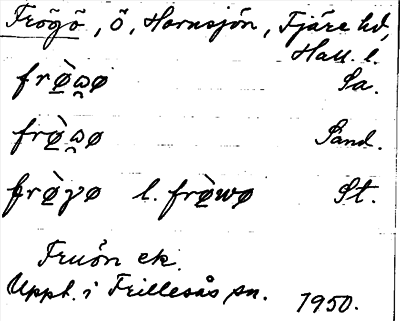 Frögö, ö, Hornsjön, Fjäre hd,
Hall. l.
frø̀ɷø Sa.
frø̀ɷø Sand.
frø̀γø l. frø̀wø St.
Fruön ek.
Uppt. i Frillesås sn. 1950.